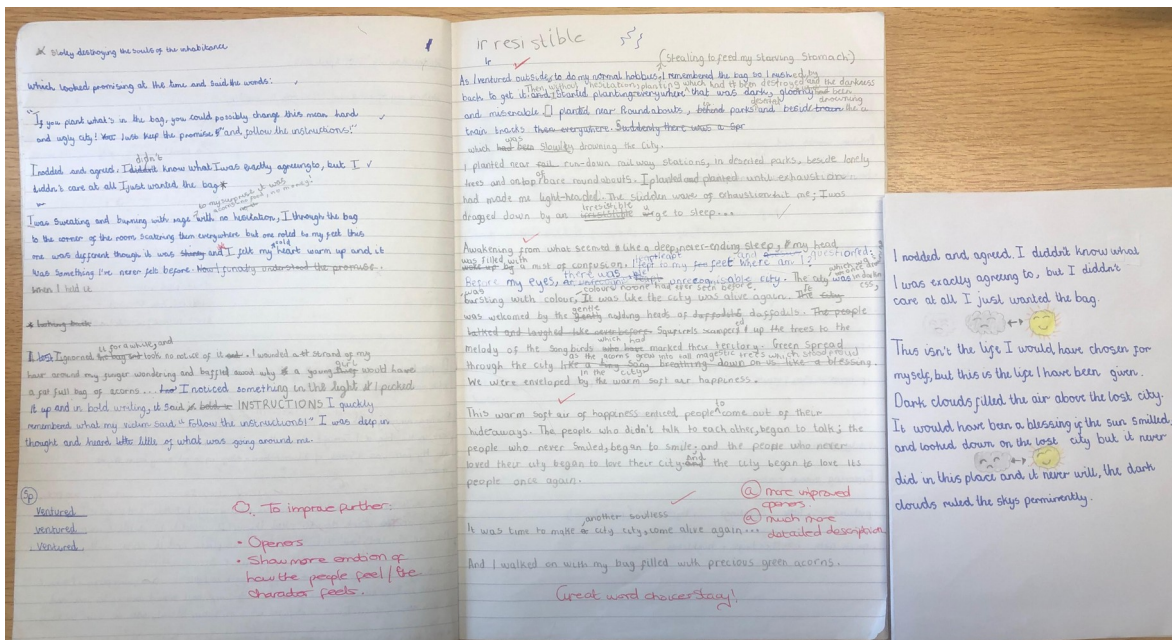 Slowly destroying the souls of the inhabitance
1
which looked promising at the time and said the words:
"If you plant what's in the bag, you could possibly change this mean hard
and ugly city! Just keep the promise and follow the instructions!"
didn't
I nodded and agreed. I know what I was exactly agreeing to, but I
diddn't care at all I just wanted the bag
to my surprise it was
I was sweating and burning with rage with no hesitation, I through the bag
to the corner of the room scatering them everywhere but one rolled to my feet this
one was different though it was and I felt my cold heart warm up and it
was something I've never felt before. Now I finally understood the promise.
when I told it
looking back
it for a while, and
I ignored took no notice of it. I wanded a strand of my
hair around my finger wondering and baffled why a young girl would have
a fat full bag of acorns... I noticed something in the light I picked
it up and in bold writing, it said INSTRUCTIONS I quickly
remembered what my victim said "Follow the instructions!" I was deep in
thought and heard little of what was going around me.
Sp
Ventured
ventured
Ventured
To improve further:
• Openers
• Show more emotion of
how the people feel/the
character feels.
irresistible
(stealing to feed my starving stomach)
As I ventured outside, to do my normal hobbies, I remembered the bag so I rushed
back to get it and, started planting everywhere that was dark, gloomy
Then, without hesitation, planting which had been destroyed and the darkness
and miserable. I planted near Roundabouts, behind parks and beside the
drowning
train tracks then everywhere. Suddenly there was a
which was had been slowly drowning the city.
I planted near run-down railway stations, in deserted parks, beside lonely
trees and on top of bare roundabouts. I planted and planted until exhaustion
had made me light-headed. The sudden wave of exhaustion hit me; I was
irresistible
dragged down by an irresistible urge to sleep...
Awakening from what seemed like a deep, never-ending sleep, my head
was filled with a mist of confusion. I leapt to my feet where am I? questioned:
there was
Before my eyes, an unrecognisable city. The city was
colours no one had ever seen before.
bursting with colour, It was like the city was alive again. The city
gentle
was welcomed by the nodding heads of daffodils. The people
talked and laughed like never before. Squirrels scamper'd up the trees to the
which had
melody of the song birds who have marked their teritary. Green spread
as the acorns grew into tall magestic trees which stood proud
through the city like a song breathing down on us like a blessing.
in the city
We were enveloped by the warm soft air happeness.
to
This warm soft air of happeness enticed people come out of their
hideaways. The people who didn't talk to each other, began to talk; the
people who never smiled, began to smile; and the people who never
loved their city began to love their city. And the city began to love its
people once again.
another soulless
It was time to make a city city, come alive again...
And I walked on with my bag filled with precious green acorns.
more improved
openers.
much more
detailed description
Great word choice Stacy!
I nodded and agreed. I diddn't know what
I was exactly agreeing to, but I diddn't
care at all I just wanted the bag.
This isn't the life I would have chosen for
myself, but this is the life I have been given.
Dark clouds filled the air above the lost city.
It would have been a blessing if the sun smiled
and looked down on the lost city but it never
did in this place and it never will, the dark
clouds ruled the skys perminently.